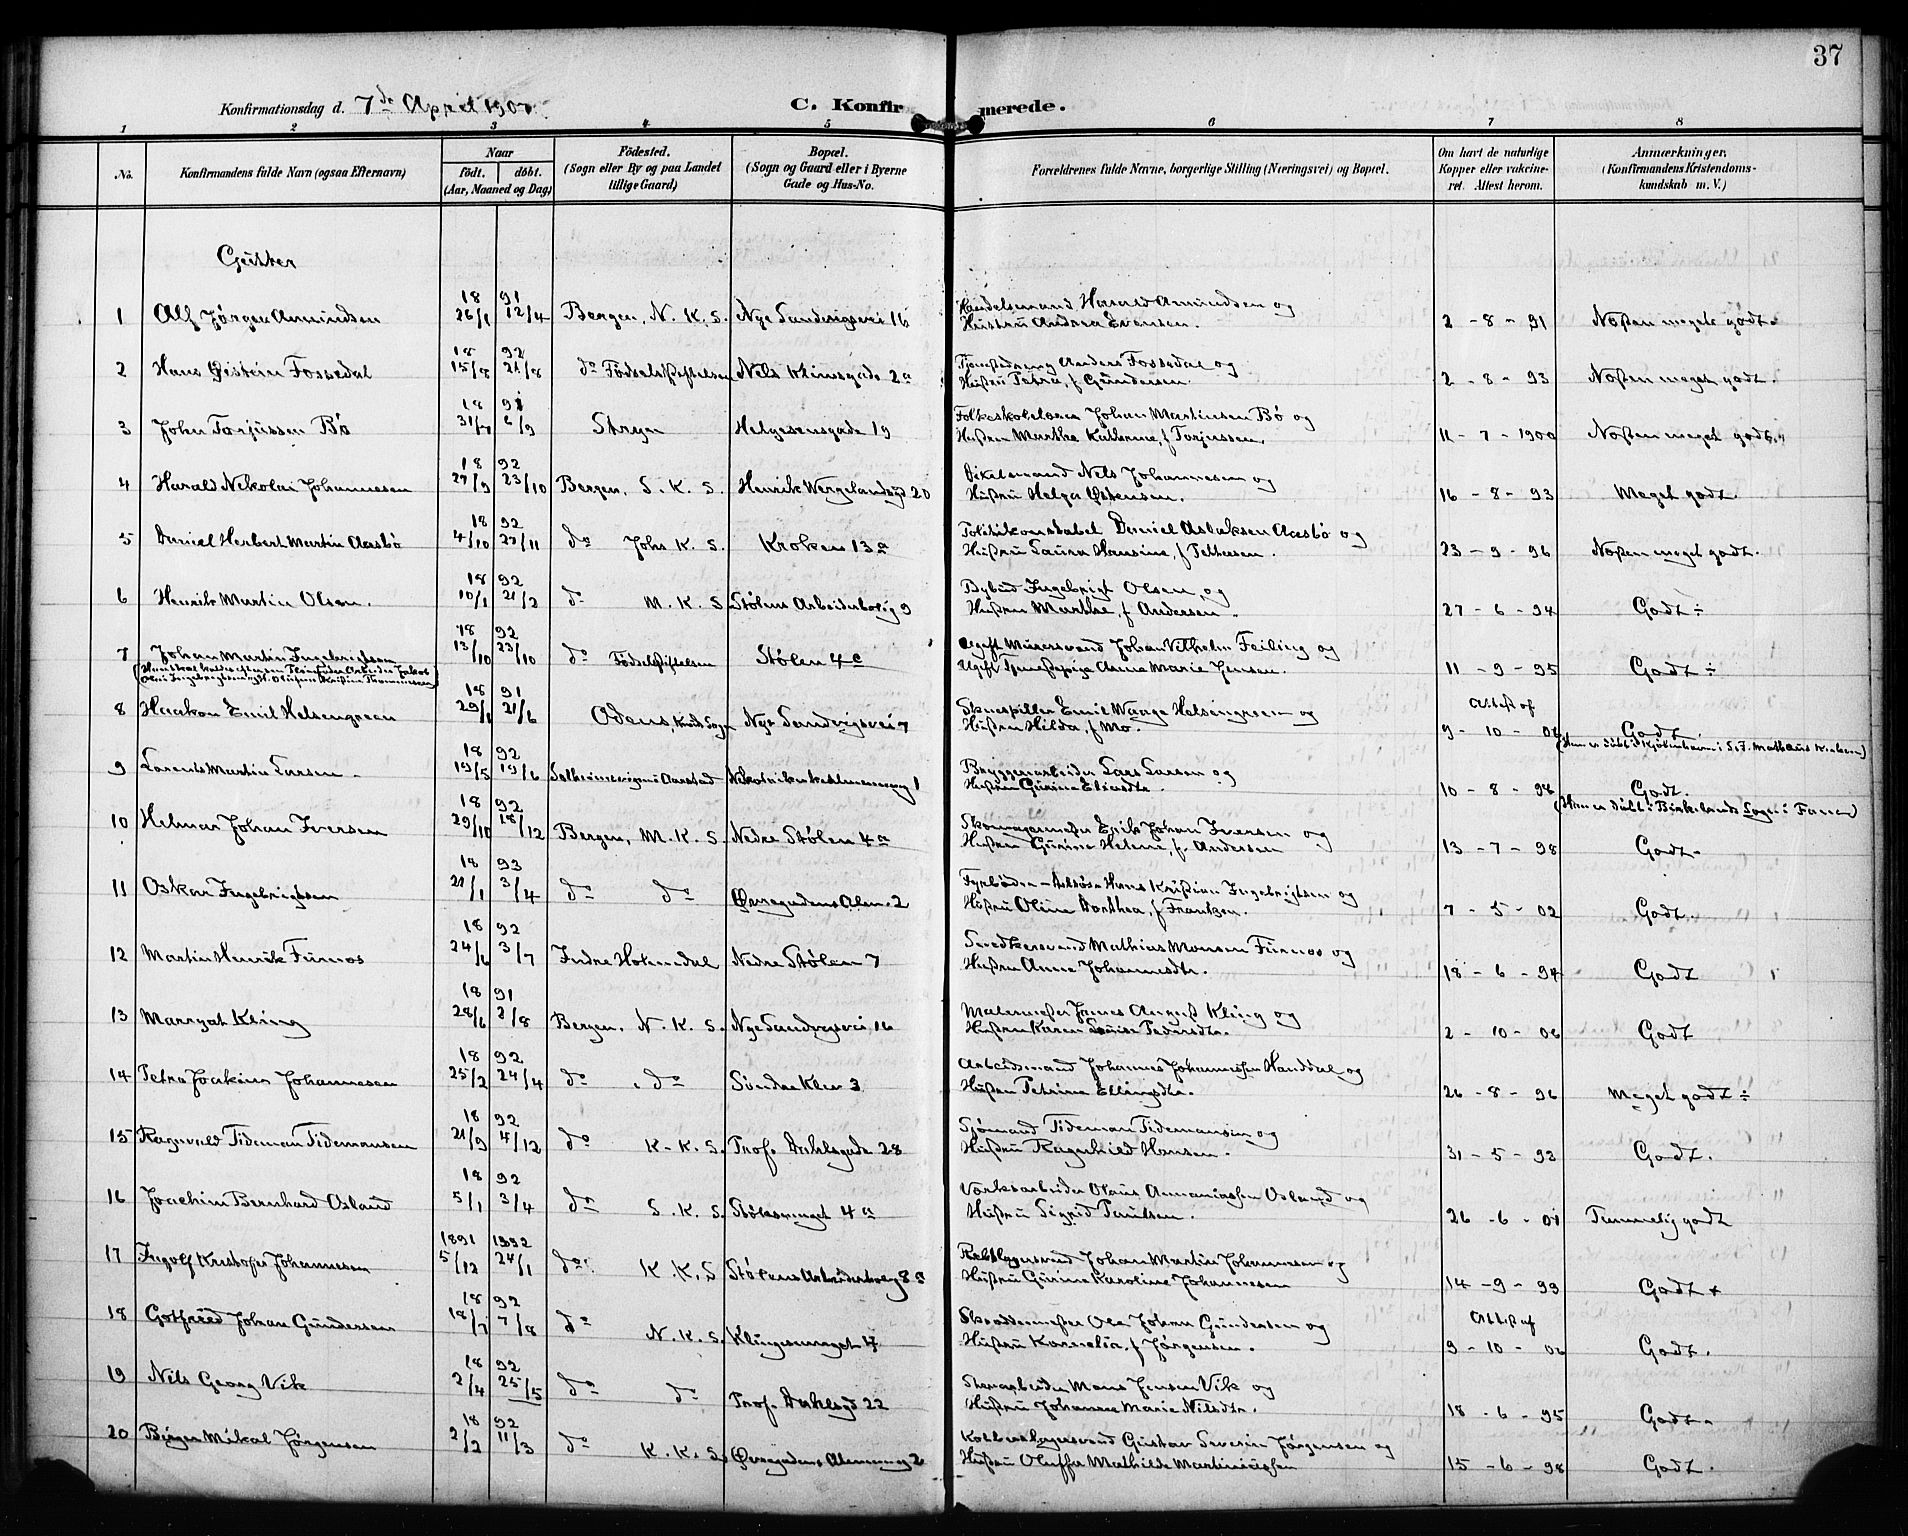 37
Konfirmationsdag d. 7de April 190
C. Konfirmerede.
1 2 3 4 5 6 7 8
No. Konfirmandens fulde Navn (ogsaa Efternavn) Naar født. døbt. (Aar, Maaned og Dag) Fødested. (Sogn eller By og paa Landet tillige Gaard) Bopæl. (Sogn og Gaard eller i Byerne Gade og Hus-No. Forældrenes fulde Navne, borgerlige Stilling (Næringsvei) og Bopæl. Om havt de naturlige Kopper eller vakcineret. Attest herom. Anmærkninger. (Konfirmandens Kristendomskundskab m. V.)
Gutter
1 Alf Jørgen Amundsen 18 91 26/1 12/4 Bergen, N. K. S. Nye Sandvigsvei 16 Handelsmand Harald Amundsen og Hustru Andrea Evensen. 2 - 8 - 91 Næsten meget godt.
2 Hans Øistein Fossedal 18 92 15/8 21/8 do Fødselsstiftelsen Nels Klimsgade 2a Anders Fossedal og Hustru Petra, f Gundersen. 2 - 8 - 93 Næsten meget godt.
3 John Torjussen Bø 18 31/7 6/9 Stryn Helgesensgade 19 Folkeskolelærer Johan Martinsen Bø og Hustru Marthe Kathrine, f Torjussen. 11 - 7 - 1900 Næsten meget godt.
4 Harald Nikolai Johannesen 18 92 27/9 23/10 Bergen, S. K. S. Henrik Wergelandsgd 20 Nels Johannesen og Hustru Helga Østensen. 16 - 8 - 93 Meget godt.
5 Daniel Herbert Martin Aasbø 18 92 4/10 27/11 do Johs K. S. Kroken 13a Politikonstabel Daniel Aslaksen Aasbø og Hustru Laura Hansine, f Pettersen. 23 - 9 - 96 Næsten meget godt.
6 Henrik Martin Olsen. 18 92 10/1 21/2 do M. K. S. Stølens Arbeiderbolig 9 Bybud Ingebrigt Olsen, og Hustru Marthe, f Andersen. 27 - 6 - 94 Godt ÷
7 Johan Martin Ingebrigtsen 18 92 13/10 23/10 do Fødselsstiftelsen Stølen 4a Ugift Murersvend Johan Vilhelm Feiling og Ugift Tjenestepige Anne Marie Jensen. 11 - 9 - 95 Godt ÷
8 Haakon Emil Helsengreen 18 91 29/1 21/6 Odens, Knuds Sogn Nye Sandvigsvei 7 Skuespiller Emil Waage Helsengreen og Hustru Hilda, f Mo. Attest af 9 - 10 - 06 Godt. (Han er døbt i Kjøbenhavn i Sct. Mathæus Kirken)
9 Lorents Martin Larsen 18 92 19/5 19/6 Solheimsvigen i Aarstad Nikolaikirkealmenning 1 Bryggearbeider Lars Larsen og Hustru Gurine Elsesdtr. 10 - 8 - 98 Godt. (Han er døbt i Birkelands Sogn i Fane)
10 Helmer Johan Iversen 18 92 29/10 18/12 Bergen, M. K. S. Nedre Stølen 4a Skomagermester Erik Johan Iversen og Hustru Gurine Helene, f. Andersen 13 - 7 - 98 Godt
11 Oskar Ingebrigtsen 18 93 21/1 3/4 do do Øvregadens Alm. 2 Fyrbøder Hans Kristian Ingebrigtsen og Hustru Oline Dorthea, f Frantzen. 7 - 5 - 02 Godt.
12 Martin Henrik Furnes 18 92 24/6 3/7 Indre Holmedal Nedre Stølen 7 Snedkersvend Mathias Monsen Furnes og Hustru Anna Johannesdtr. 18 - 6 - 94 Godt
13 Marryat Kling 18 91 28/6 2/8 Bergen, N. K. S. Nye Sandvigsvei 16 Malermester James August Kling og Hustru Karen Louise Pedersdtr. 2 - 10 - 06 Godt
14 Petra Joakim Johannesen 18 92 25/2 24/4 do do Søndre Klev 3 Arbeidsmand Johannes Johannessen Handdal og Hustru Petrine Ellingsdtr. 26 - 8 - 96 Meget godt ÷
15 Ragnvald Tideman Tidemansen 18 92 21/9 4/12 do K. K. S. Prof. Dahlsgade 28 Sjømand Tideman Tidemansen og Hustru Ragnhild Hansen. 31 - 5 - 93 Godt.
16 Joachim Bernhard Osland 18 92 5/1 3/4 do S. K. S. Stølesmuget 4a Værksarbeider Olaus Annaniassen Osland og Hustru Sigrid Paulsen. 26 - 6 - 01 Temmelig godt
17 Ingolf Kristofer Johannesen 1891 1892 5/12 24/1 do K. K. S Stølens Arbeiderbolig 8a Johan Martin Johannesen og Hustru Gurine Karoline Johannesen 14 - 9 - 99 Godt +
18 Gotfred Johan Gundersen 18 92 18/7 7/8 do N. K. S. Klingesmuget 4 Skræddermester Ole Johan Gundersen og Hustru Kornelia, f Jørgensen. Attest af 9 - 10 - 06 Godt.
19 Nils Georg Vik 18 92 2/4 25/5 do do Prof. Dahlsgd 22 Mons Jensen Vik og Hustru Johanne Marie Nilsdtr. 18 - 6 - 95 Godt
20 Birger Mikal Jørgensen 18 92 2/2 11/3 do K. K. S. Øvregadens Almenning 2 Kobberslagersvend Gustav Severin Jørgensen og Hustru Oluffa Mathilde Martinussen 15 - 6 - 98 Godt.